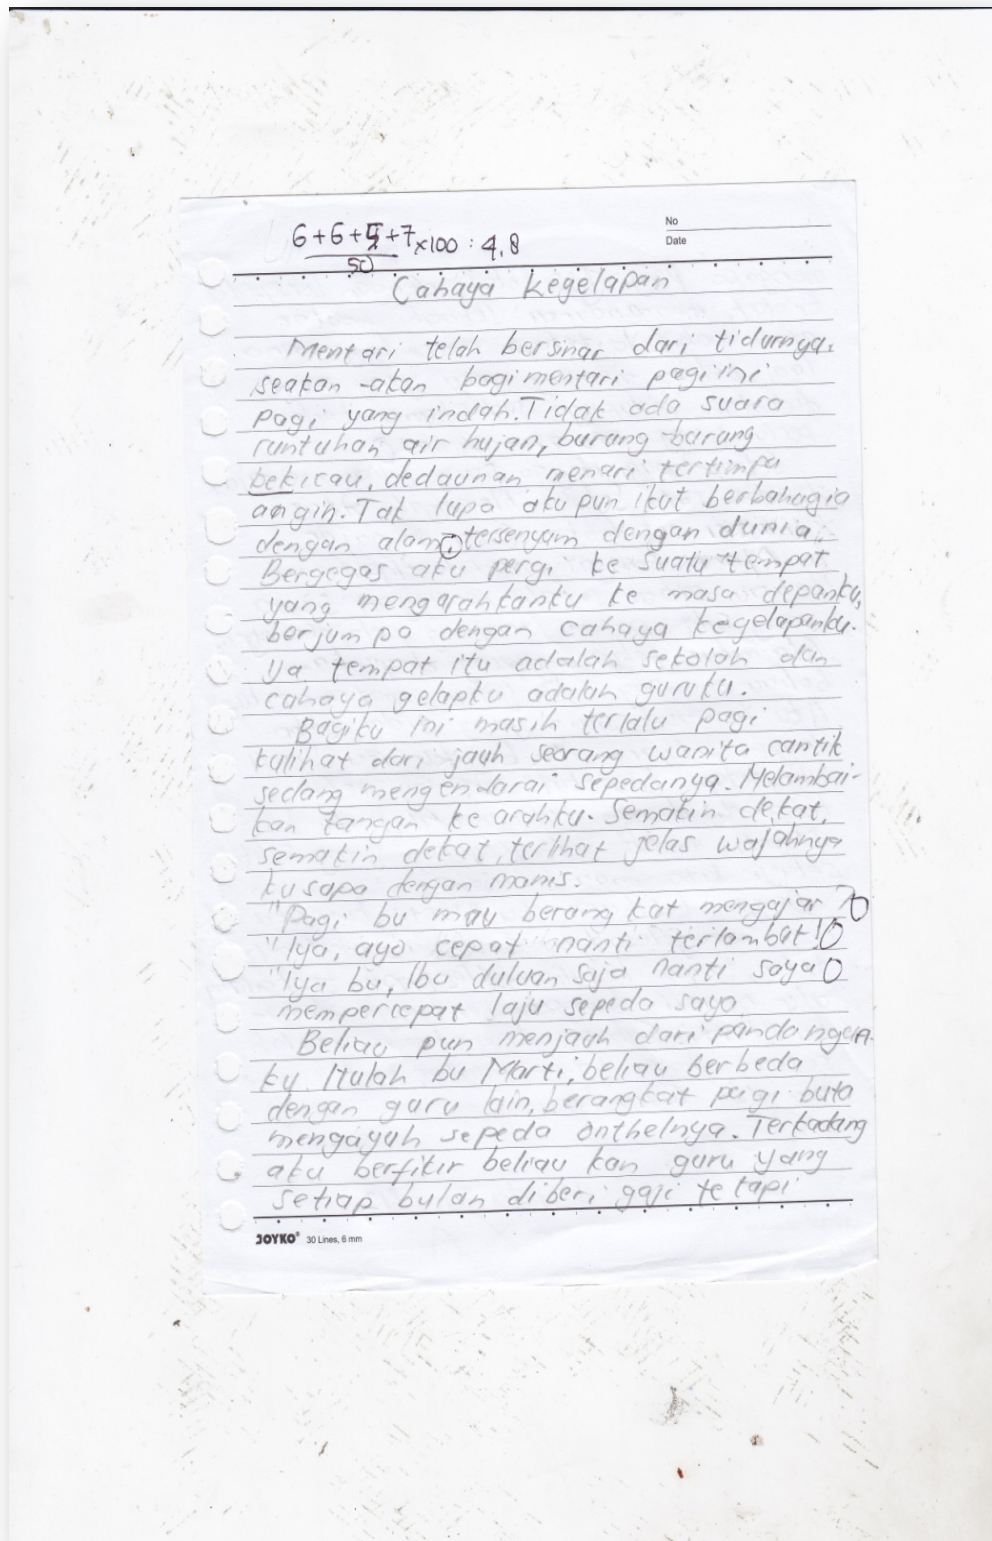 6+6+5+7 x100 : 4,8
50
No
Date
Cahaya kegelapan
Mentari telah bersinar dari tidurnya.
seakan-akan bagi mentari pagi ini
pagi yang indah. Tidak ada suara
runtuhan air hujan, burung-burung
bekicau, dedaunan menari tertimpa
angin. Tak lupa akupun ikut berbahagia
dengan alam, tersenyum dengan dunia.
Bergegas aku pergi ke suatu tempat
yang mengarahkanku ke masa depanku,
berjumpa dengan cahaya kegelapanku.
Ya tempat itu adalah sekolah dan
cahaya gelapku adalah guruku.
Bagiku ini masih terlalu pagi
kulihat dari jauh seorang wanita cantik
sedang mengendarai sepedanya. Melambai-
kan tangan ke arahku. Semakin dekat,
semakin dekat, terlihat jelas wajahnya
ku sapa dengan manis.
"Pagi bu mau berangkat mengajar?
"Iya, ayo cepat nanti terlambat!
"Iya bu, Ibu duluan saja nanti saya
mempercepat laju sepeda saya
Beliau pun menjauh dari pandangan
ku Itulah bu Marti, beliau berbeda
dengan guru lain, berangkat pagi buta
mengayuh sepeda onthelnya. Terkadang
aku berfikir beliau kan guru yang
setiap bulan diberi gaji tetapi
JOYKO® 30 Lines, 6 mm